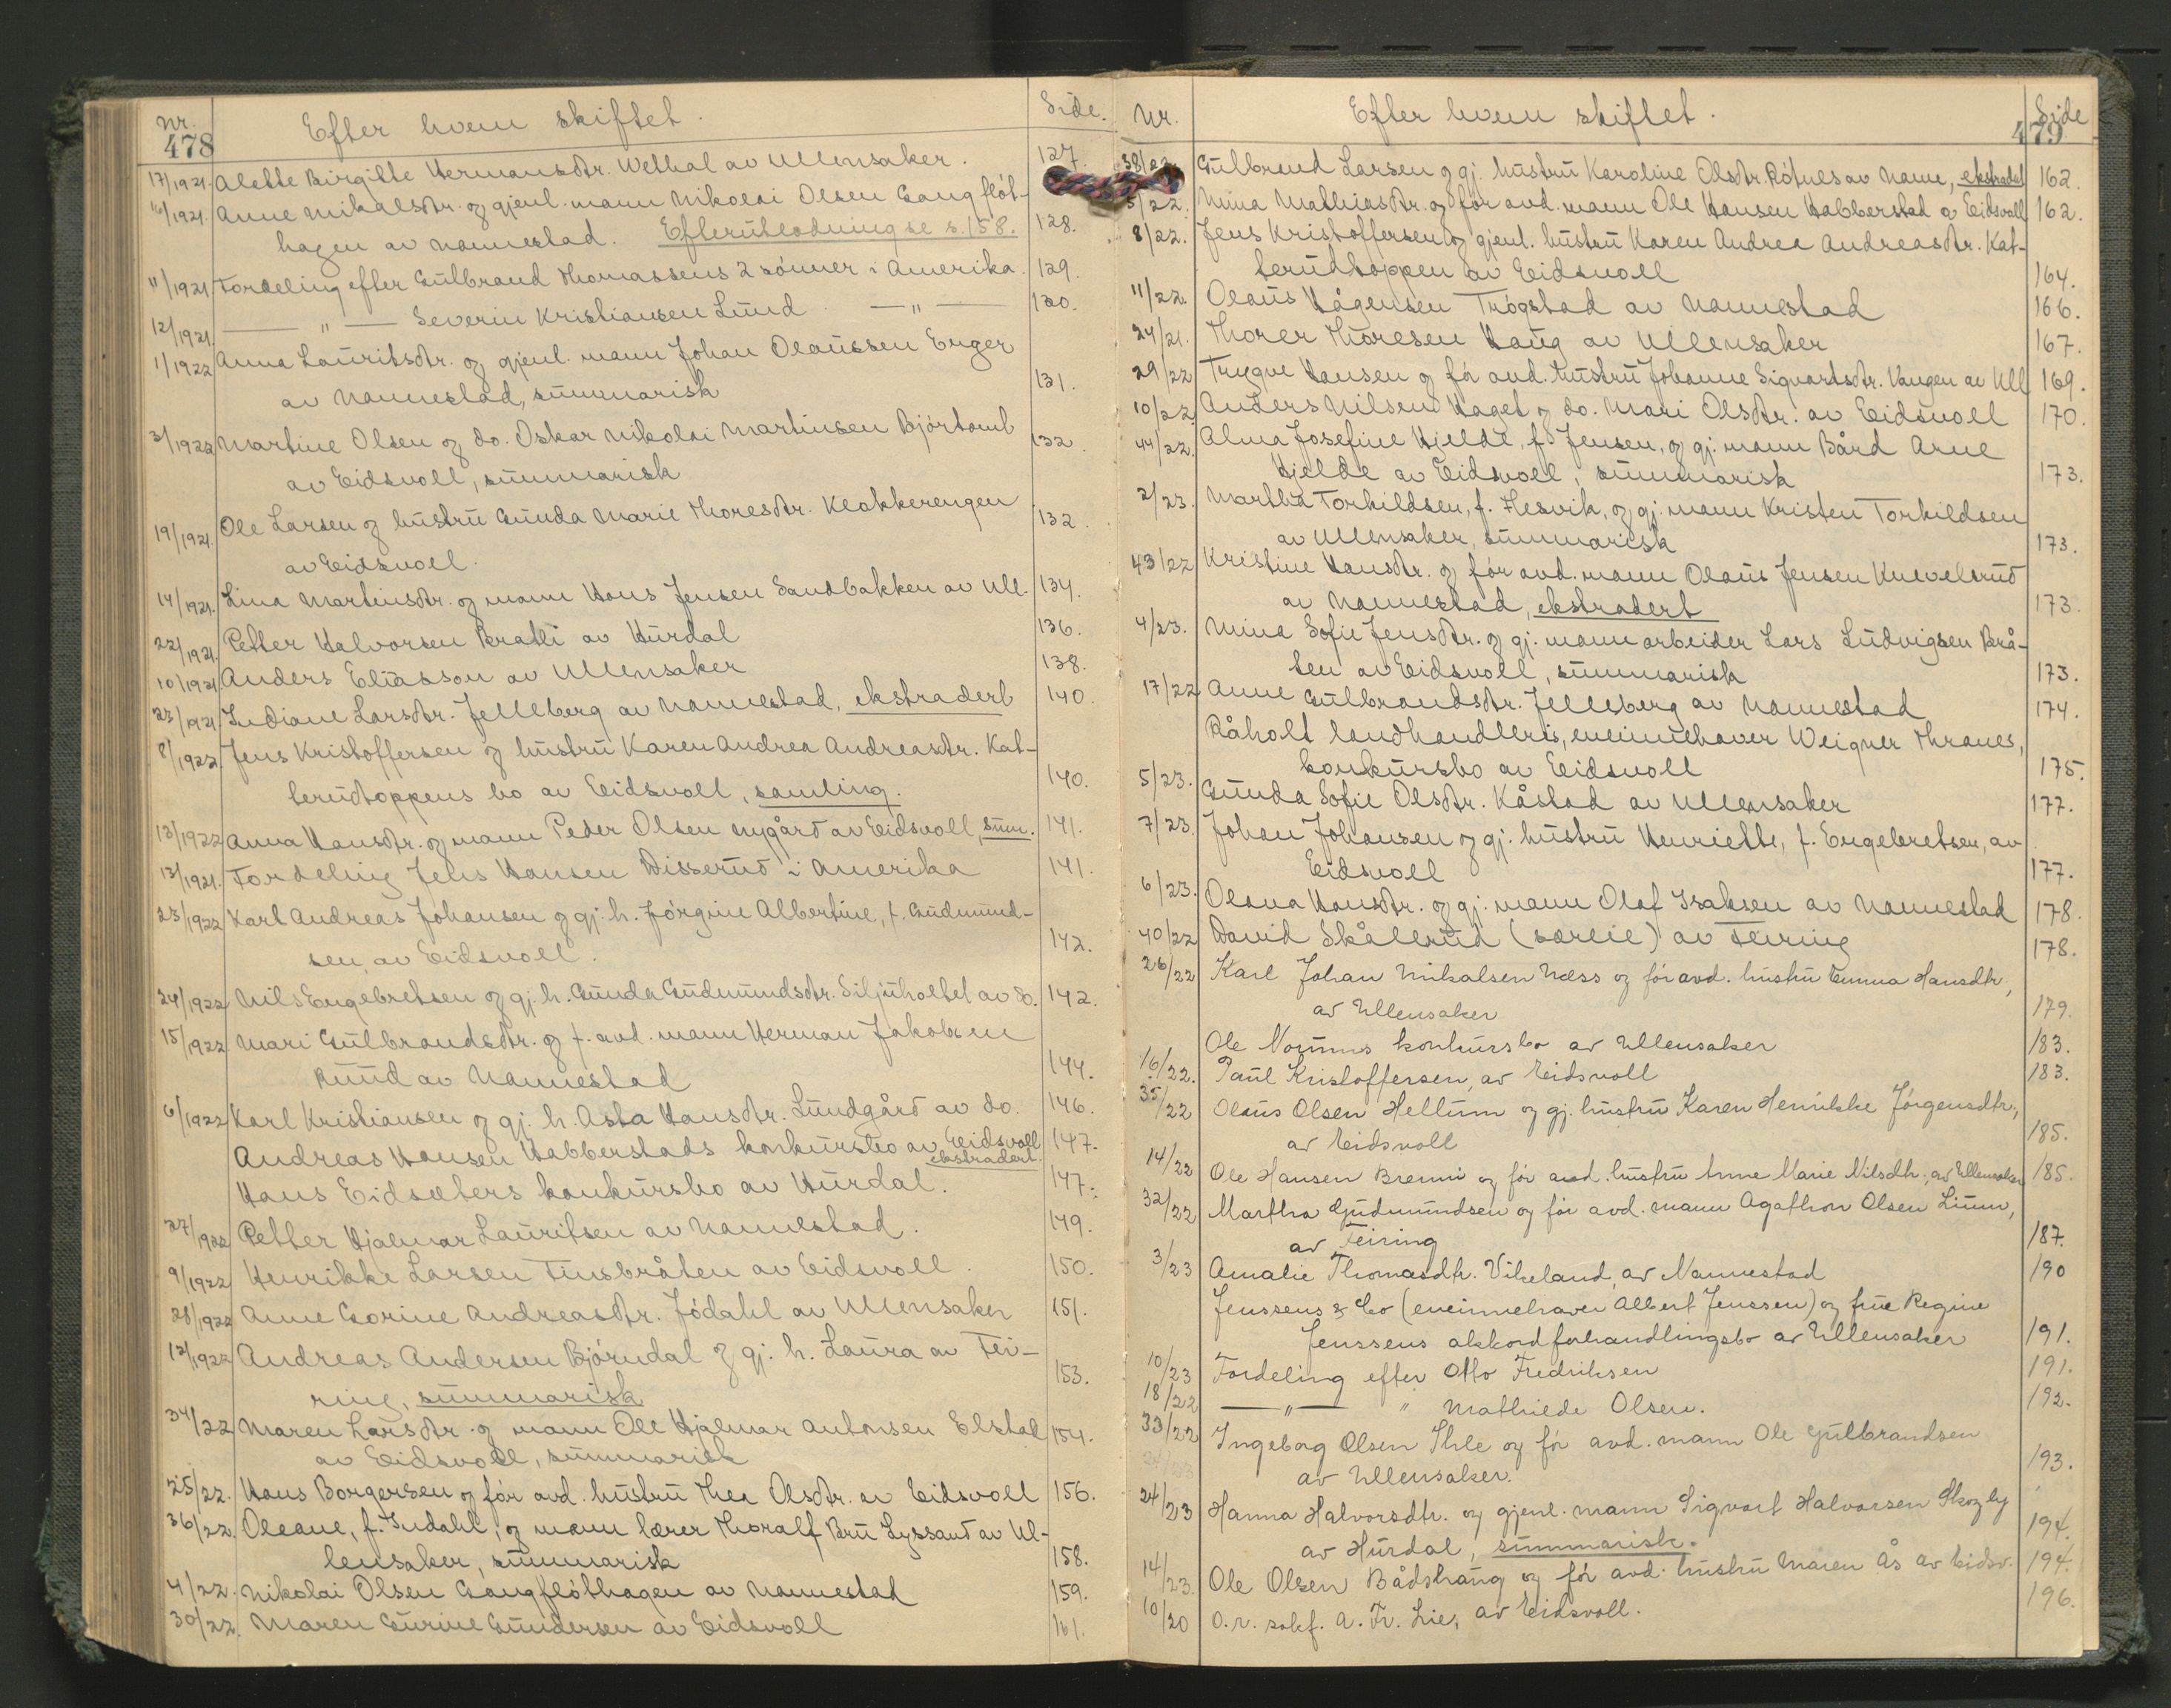 Nr. Efter hvem skiftet. Side.
478
17/1921. Alette Birgitte Hermansdtr. Welhal av Ullensaker. 127.
16/1921. Anne Mikalsdtr. og gjenl. mann Nikolai Olsen Gangfløt-
hagen av Nannestad. Efterutlodning se s. 158. 128.
11/1921. Fordeling efter Gulbrand Thomassens 2 sønner i Amerika. 129.
12/1921. — " — Severin Kristiansen Lund — " — 130.
1/1922 Anna Lauritsdtr. og gjenl. mann Johan Olaussen Enger
av Nannestad, summarisk 131.
3/1922 Martine Olsen og do. Oskar Nikolai Martinsen Bjørtomt 132
av Eidsvoll, summarisk
19/1921. Ole Larsen og hustru Gunda Marie Thoresdtr. Klokkerengen 132.
av Eidsvoll.
14/1921. Lina Martinsdtr. og mann Hans Jensen Sandbakken av Ull. 134.
22/1921. Petter Halvorsen Bratli av Hurdal 136.
10/1921 Anders Eliasson av Ullensaker 138.
23/1921. Indiane Larsdtr. Jelleberg av Nannestad, ekstradert 140.
8/1922. Jens Kristoffersen og hustru Karen Andrea Andreasdtr. Kat-
terudtoppens bo av Eidsvoll, samling. 140.
13/1922 Anna Hansdtr. og mann Peder Olsen Nygård av Eidsvoll, sum. 141.
13/1921. Fordeling Jens Hansen Disserud i Amerika 141.
23/1922 Karl Andreas Johansen og gj. h. Jørgine Albertine, f. Gudmund-
sen, av Eidsvoll. 142.
24/1922 Nils Engebretsen og gj. h. Gunda Gudmundsdtr. Siljuholtet av do. 142.
15/1922. Mari Gulbrandsdtr. og f. avd. mann Herman Jakobsen
Ruud av Nannestad 144.
6/1922 Karl Kristiansen og gj. h. Asta Hansdtr. Lundgård av do. 146.
Andreas Hansen Habberstads konkursbo av Eidsvoll 147.
ekstradert.
Hans Eidsæters konkursbo av Hurdal. 147.
27/1922 Petter Hjalmar Lauritsen av Nannestad. 149.
9/1922 Henrikke Larsen Finsbråten av Eidsvoll. 150.
28/1922 Anne Gorine Andreasdtr. Jødahl av Ullensaker 151.
12/1922 Andreas Andersen Bjørndal og gj. h. Laura av Fei-
ring, summarisk 153.
34/22 Maren Larsdtr. og mann Ole Hjalmar Antonsen Elstad 154.
av Eidsvoll, summarisk
25/22. Hans Borgersen og før avd. hustru Thea Olsdtr. av Eidsvoll 156.
36/22. Oleane, f. Indahl, og mann lærer Thoralf Bru Lyssand av Ul-
lensaker, summarisk 158.
4/22. Nikolai Olsen Gangfløthagen av Nannestad 159.
30/22. Maren Gurine Gundersen av Eidsvoll 161.
Nr. Efter hvem skiftet. Side
479
38/22. Gulbrand Larsen og gj. hustru Karoline Olsdtr. Røtnes av Nann, ekstradert 162.
5/22. Mina Mathiasdtr. og før avd. mann Ole Hansen Habberstad av Eidsvoll 162.
8/22. Jens Kristoffersen og gjenl. hustru Karen Andrea Andreasdtr. Kat-
terudtoppen av Eidsvoll 164.
11/22. Olaus Hågensen Trøgstad av Nannestad 166.
24/21. Thorer Thoresen Haug av Ullensaker 167.
29/22 Trygve Hansen og før avd. hustru Johanne Sigvartsdtr. Vangen av Ull 169.
10/22 Anders Nilsen Haget og do. Mari Olsdtr. av Eidsvoll 170.
44/22. Alma Josefine Hjelde, f. Jensen, og gj. mann Bård Arne
Hjelde av Eidsvoll, summarisk 173.
2/23. Martha Torkildsen, f. Hesvik, og gj. mann Kristen Torkildsen
av Ullensaker, summarisk 173.
43/22 Kristine Hansdtr. og før avd. mann Olaus Jensen Knevelsrud
av Nannestad, ekstradert 173.
4/23. Mina Sofie Jensdtr. og gj. mann arbeider Lars Ludvigsen Brå-
ten av Eidsvoll, summarisk 173.
17/22 Anne Gulbrandsdtr. Jelleberg av Nannestad 174.
Råholt landhandleri, eneinnehaver Weigner Thranes,
konkursbo av Eidsvoll 175.
5/23. Gunda Sofie Olsdtr. Kåstad av Ullensaker 177.
7/23. Johan Johansen og gj. hustru Henriette, f. Engebretsen, av
Eidsvoll 177.
6/23. Olava Hansdtr. og gj. mann Olaf Isaksen av Nannestad 178.
40/22 David Skållerud (særeie) av Feiring 178.
26/22 Karl Johan Mikalsen Næss og før avd. hustru Emma Hansdtr,
av Ullensaker 179.
Ole Nordmos konkursbo av Ullensaker 183.
16/22. Paul Kristoffersen, av Eidsvoll 183.
35/22 Olaus Olsen Hellum og gj. hustru Karen Henrikke Jørgensdtr.,
av Eidsvoll 185.
14/22 Ole Hansen Brenni og før avd. hustru Anne Marie Nilsdtr., av Ullensaker 185.
32/22 Martha Gudmundsen og før avd. mann Agathon Olsen Linn,
av Feiring 187.
3/23 Amalie Thomasdtr. Vikeland, av Nannestad 190
Jenssens & Co (eneinnehaver Albert Jenssen) og frue Regine
Jenssens akkordforhandlingsbo av Ullensaker 191.
10/23 Fordeling efter Otto Fredriksen 191.
18/22 — " — " Mathilde Olsen. 192.
33/22 Ingeborg Olsen Ihle og før avd. mann Ole Gulbrandsen
av Ullensaker. 193.
24/23 Hanna Halvorsdtr. og gjenl. mann Sigvart Halvorsen Skogly
av Hurdal, summarisk. 194.
14/23. Ole Olsen Bådshaug og før avd. hustru Maren Ås av Eidsv. 194.
10/20 O.r. sakf. A. Fr. Lie, av Eidsvoll. 196.